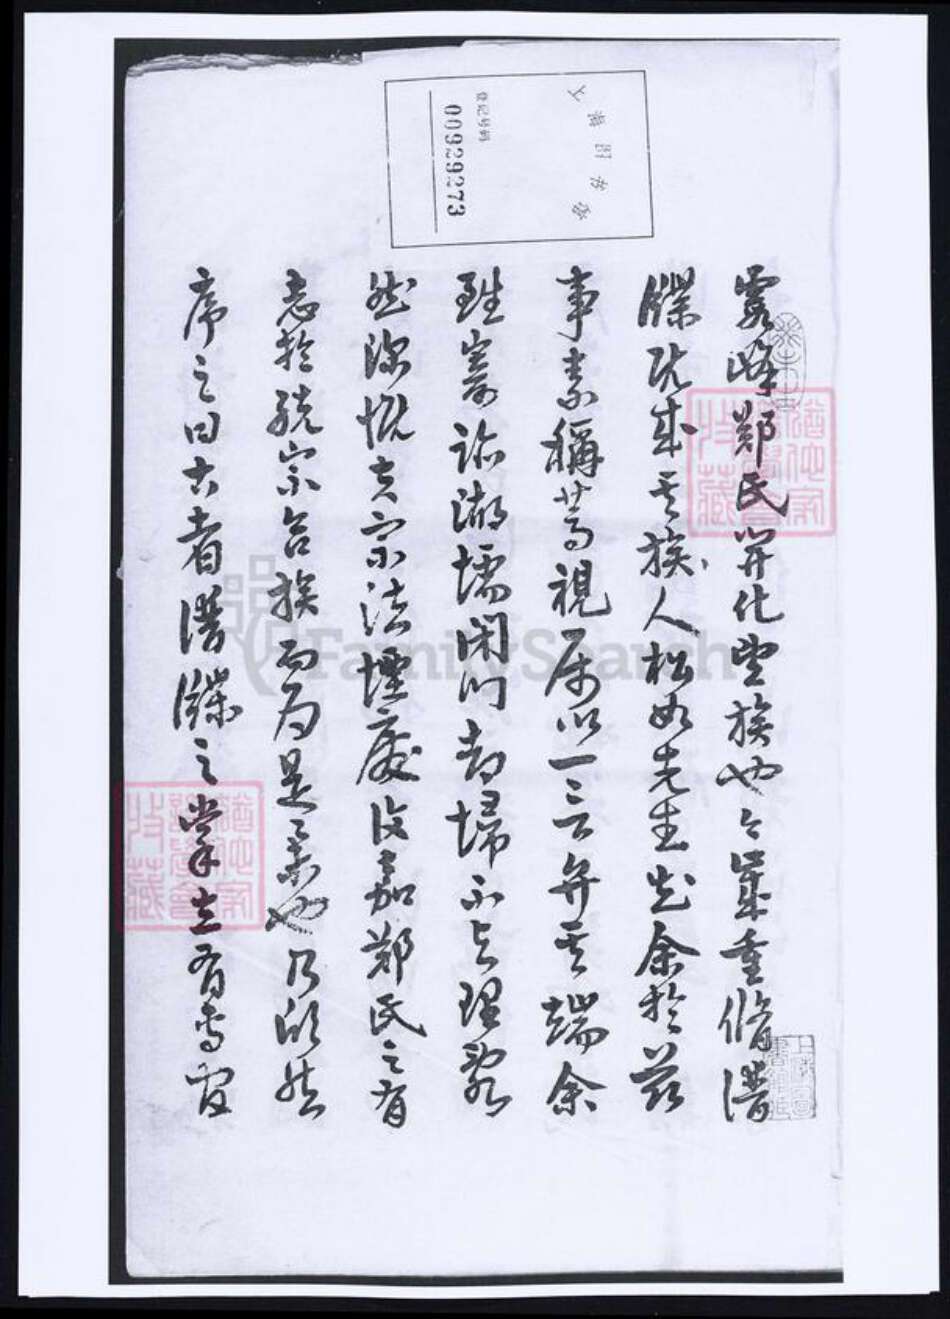 上海图书馆
登记号码
00929273
霞峰鄭氏開化望族也今歲重脩譜
牒既成其族人松如先生以余於茲
事素稱篤視屬以一言弁其端余
跡湖壖閑門却掃不與理亂
然深慨夫宗法堙廢後嘉鄭氏之有
志於統宗合族而為是舉也乃欣然
序之曰古者譜牒之掌立有專官
FamilySearch